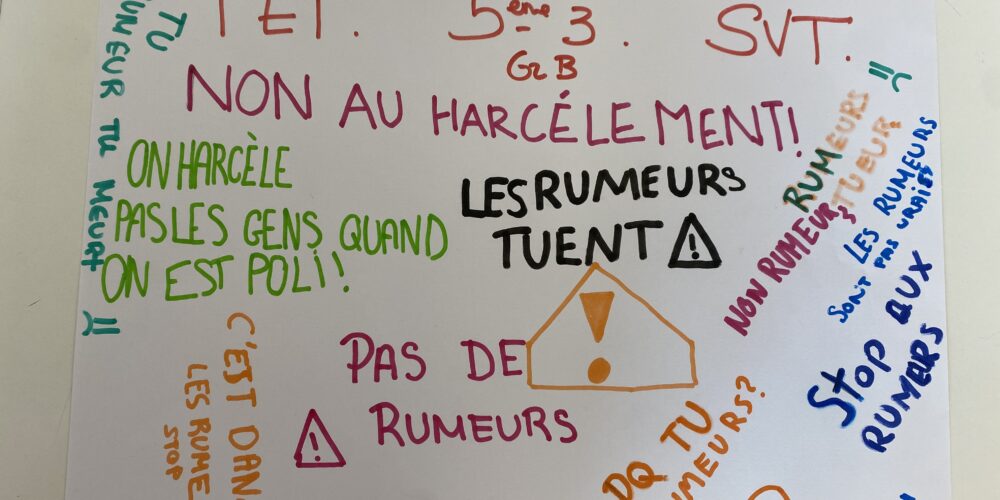 5ème-3.
Gr B
SVT.
NON AU HARCÉLEMENT!
ON HARCÈLE
PAS LES GENS QUAND
ON EST POLI!
LES RUMEURS
TUENT
PAS DE
RUMEURS
TU
RUMEUR TU MEURT
RUMEURS
TUEUR
NON RUMEURS
LES RUMEURS
SONT PAS VRAIES
STOP AUX
RUMEURS
C'EST DANG
LES RUME
STOP
DQ TU
UMEURS?